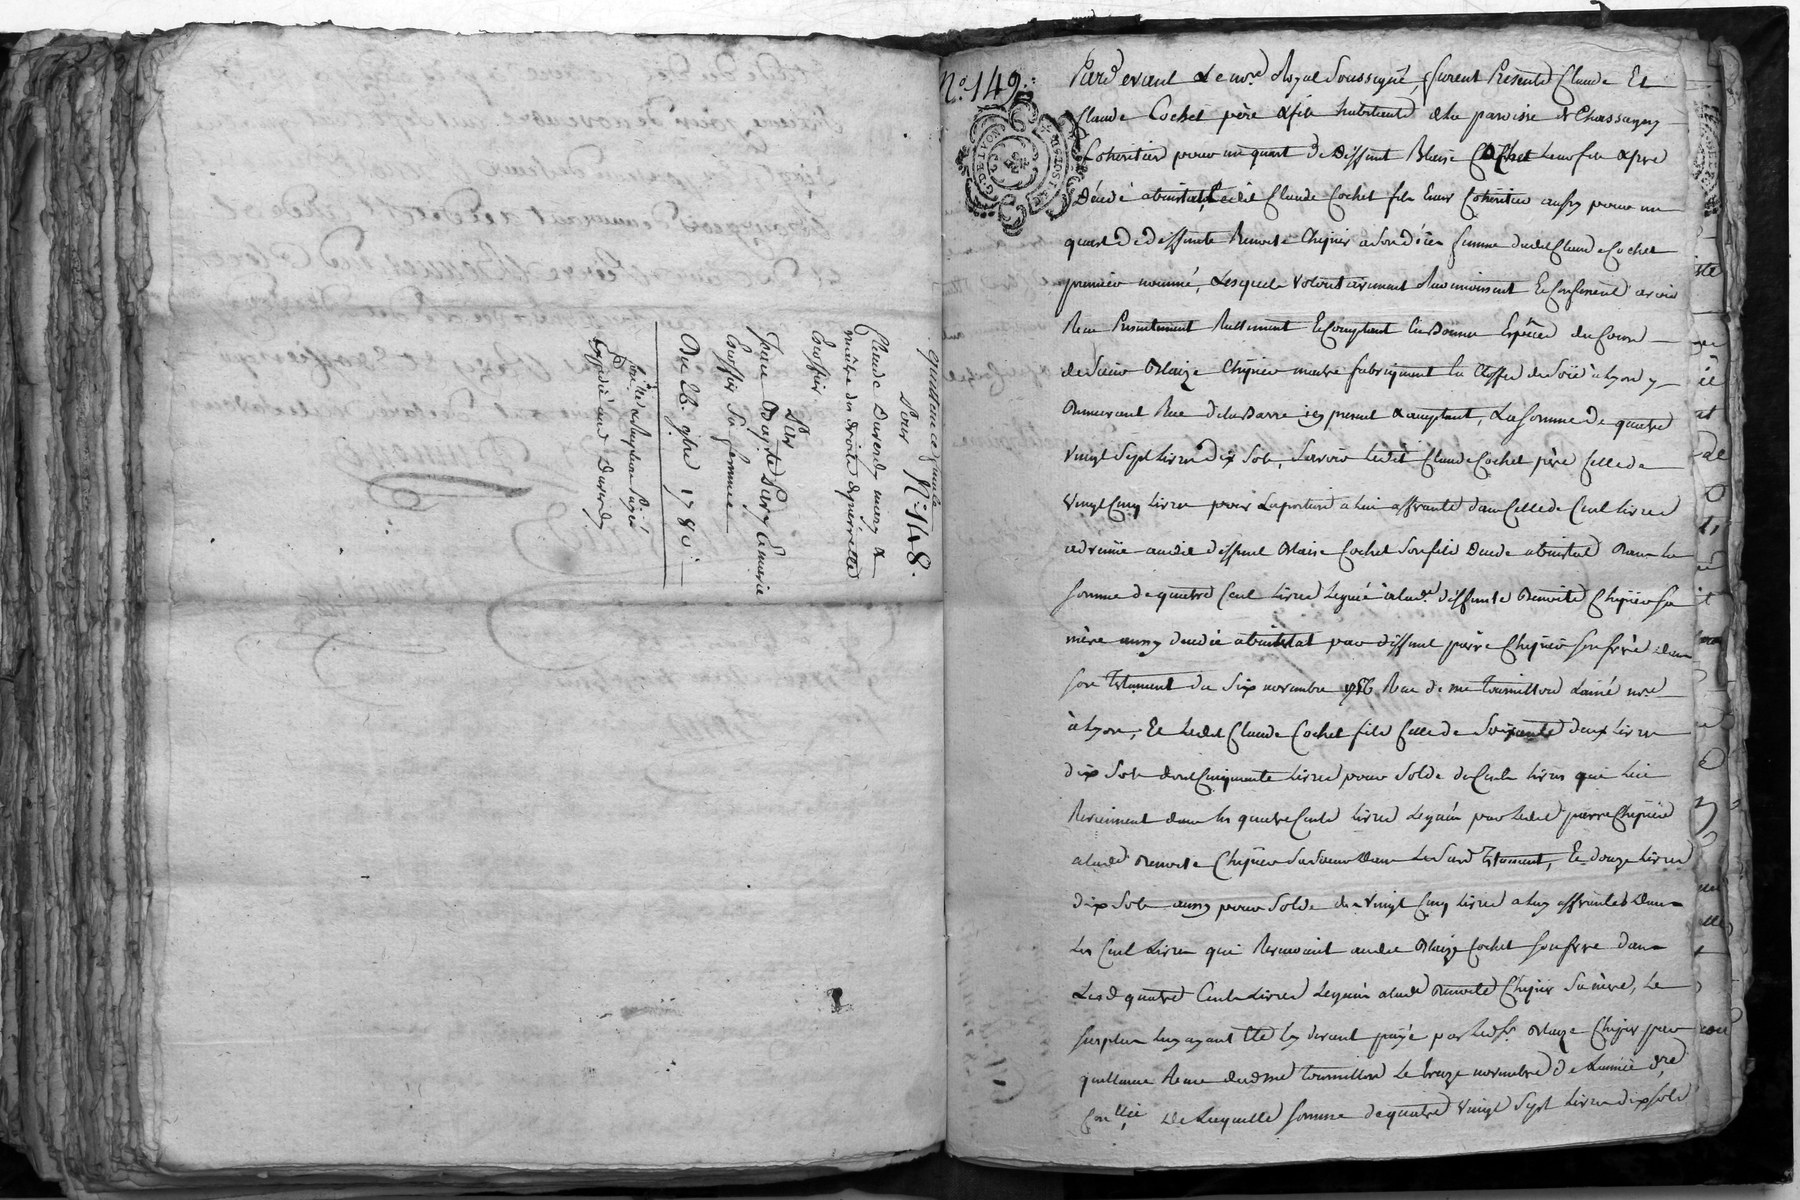 quittance finale
N.º 148.
Pour
Claude Durend mary &
maître des droits de pierrette
Coissier
Par
Jean Baptiste Pary & marie
Coissier Sa femme
Du 26. 9bre 1780.
Expédié aud Durend
N.º 149.
G. DE LYON
Pard evant Le nore Royal Soussigné, furent Présents Claude Et
Claude Cochet père & fils habitants de la paroisse de Chassagny
Cohéritiers pour un quart de Deffunt Blaise Cochet leur fils & frère
Décédé abintestat, Ledit Claude Cochet fils Encor Cohéritier aussy pour un
quart de deffunte Benoite Chipier a son décès femme dudit Claude Cochet
premier nommé, Lesquels volontairement Reconnoissent Et Confessent avoir
Reçu Présentement Réellement Et Comptant En Bonnes Espèces du Cours
de Sieur Blaize Chipier maitre fabriquant En Etoffes de Soïe à Lyon y
demeurant Rue de la Barre icy present & acceptant, La Somme de quatre
vingt Sept Livres dix Sols, Scavoir Ledit Claude Cochet père Celle de
vingt Cinq Livres pour La portion a lui afférante dans Celle de Cent Livres
advenüe audit deffunt Blaise Cochet Son fils Décédé abintestat Dans la
Somme de quatre Cent Livres Leguée à lade deffunte Benoite Chipier Sa
mère aussy décédée abintestat par deffunt pierre Chipier Son frère dans
Son Testament du Six novembre 1756 Reçu de me Tournillon L'ainé nore
à Lyon, Et Ledit Claude Cochet fils Celle de Soixante deux Livres
dix Sols dont Cinquante Livres pour Solde de Cents Livres qui Lui
Reviennent dans les quatre Cents Livres Legués par Ledit pierre Chipier
a lade Benoite Chipier Sa Soeur Dans Le Susd Testament, Et douze Livres
dix Sols aussy pour Solde de vingt Cinq Livres a Luy afférantes Dans
Les Cent Livres qui Revenoient audit Blaize Cochet Son frere dans
Lesd quatre Cents Livres Legués a lade Benoite Chipier Sa mère, Le
Surplus Luy ayant Eté Cy devant payé par Led Sr Blaize Chipier par
quittance Reçue dud me Tournillon Le treize novembre de L'année dre
Conllée De Laquelle Somme de quatre vingt Sept Livres dix Sols